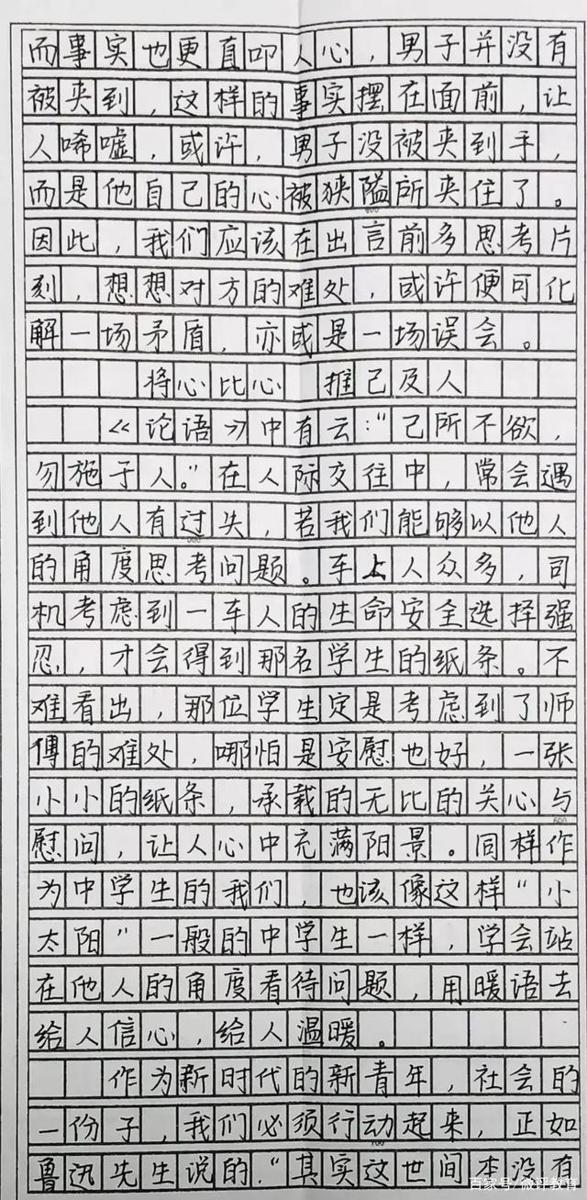 而事实也更直叩人心，男子并没有
被夹到，这样的事实摆在面前，让
人唏嘘，或许，男子没被夹到手，
而是他自己的心被狭隘所夹住了。
400
因此，我们应该在出言前多思考片
刻，想想对方的难处，或许便可化
解一场矛盾，亦或是一场误会。
将心比心 推己及人
《论语》中有云：“己所不欲，
勿施于人。”在人际交往中，常会遇
到他人有过失，若我们能够以他人
500
的角度思考问题。车上人众多，司
机考虑到一车人的生命安全选择强
忍，才会得到那名学生的纸条。不
难看出，那位学生定是考虑到了师
傅的难处，哪怕是安慰也好，一张
小小的纸条，承载的无比的关心与
600
慰问，让人心中充满阳景。同样作
为中学生的我们，也该像这样“小
太阳”一般的中学生一样，学会站
在他人的角度看待问题，用暖语去
给人信心，给人温暖。
作为新时代的新青年，社会的
一份子，我们必须行动起来，正如
700
鲁迅先生说的.“其实这世间本没有
百家号/微评教育